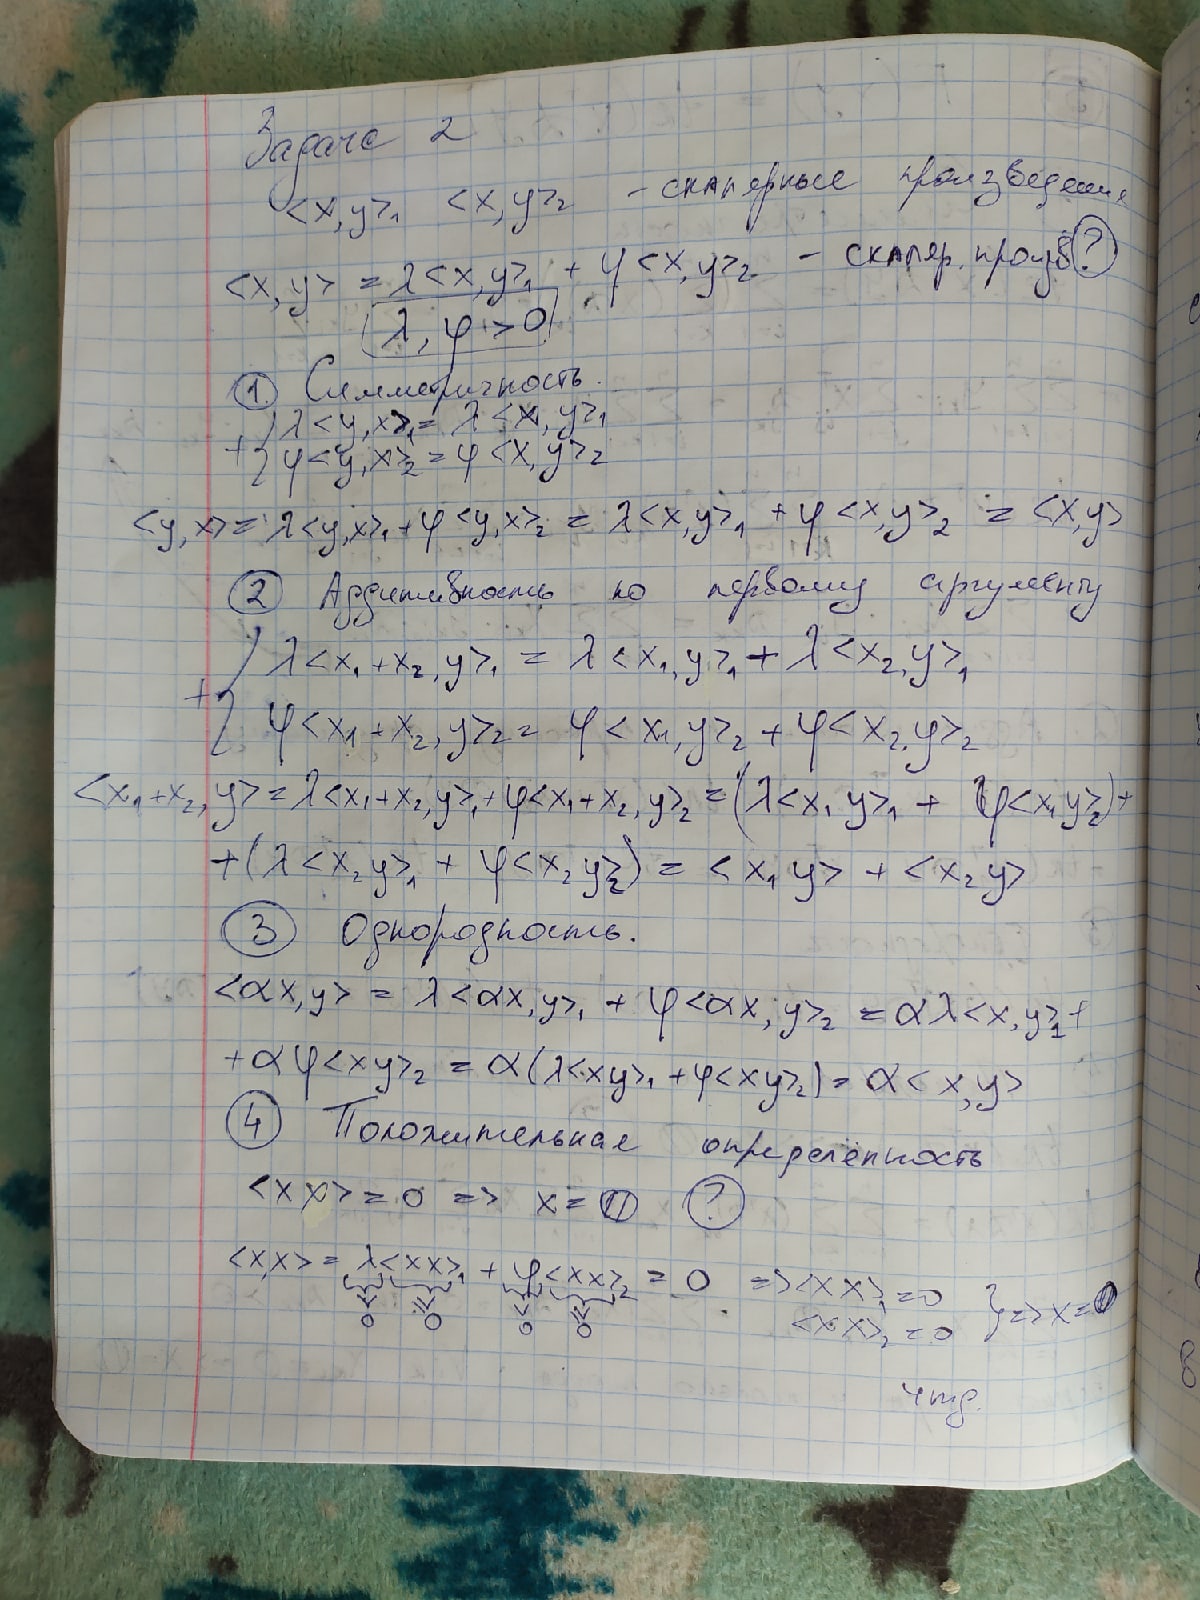 Задача 2
<x,y>₁ <x,y>₂ - скалярные произведения
<x,y> = λ<x,y>₁ + φ<x,y>₂ - скаляр. произв ?
λ, φ > 0
1. Симметричность.
λ<y,x>₁ = λ<x,y>₁
+{ φ<y,x>₂ = φ<x,y>₂
<y,x> = λ<y,x>₁ + φ<y,x>₂ = λ<x,y>₁ + φ<x,y>₂ = <x,y>
2 Аддитивность по первому аргументу
λ<x₁+x₂,y>₁ = λ<x₁,y>₁ + λ<x₂,y>₁
+{ φ<x₁+x₂,y>₂ = φ<x₁,y>₂ + φ<x₂,y>₂
<x₁+x₂,y> = λ<x₁+x₂,y>₁ + φ<x₁+x₂,y>₂ = (λ<x₁y>₁ + φ<x₁y>₂) +
+ (λ<x₂y>₁ + φ<x₂y>₂) = <x₁y> + <x₂y>
3 Однородность.
<αx,y> = λ<αx,y>₁ + φ<αx,y>₂ = αλ<x,y>₁ +
+ αφ<xy>₂ = α(λ<xy>₁ + φ<xy>₂) = α<x,y>
4 Положительная определённость
<xx> = 0 => x = 0 ?
<x,x> = λ<xx>₁ + φ<xx>₂ = 0 => <xx>₁ = 0
<xx>₂ = 0 } => x = 0
чтд.